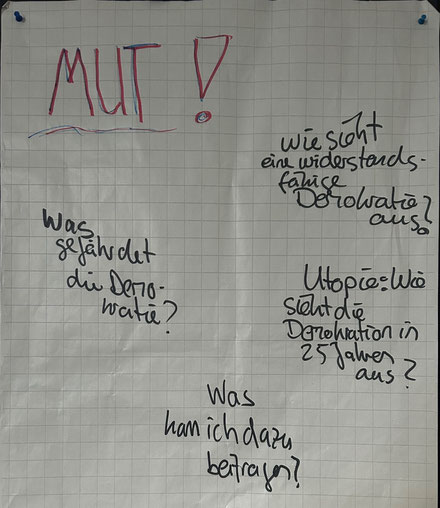 MUT !
Wie sieht
eine widerstands-
fähige
Demokratie
aus?
Was
gefährdet
die Demo-
kratie?
Utopie: Wie
sieht die
Demokration in
25 Jahren
aus?
Was
kann ich dazu
beitragen?